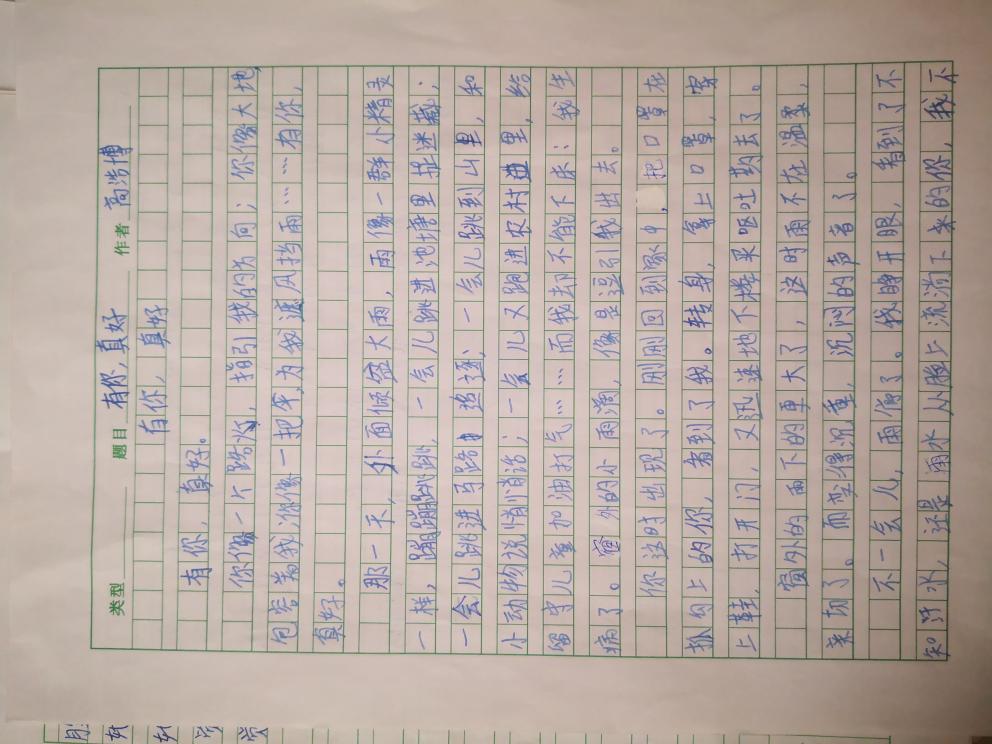 类型 题目 有你,真好 作者 高浩博
有你,真好
有你,真好。
你像一个路灯,指引我的方向;你像大地,
包容着我;你像一把伞,为我遮风挡雨……有你,
真好。
那一天,外面倾盆大雨,雨像一群小精灵
一样,蹦蹦跳跳,一会儿跳进池塘里捉迷藏;
一会儿跳进马路追逐;一会儿跳到山里,和
小动物说悄悄话;一会儿又跑进农村里,给
留守儿童加油打气……而我却不能下床:我生
病了。窗外的小雨滴,像是逗引我出去。
你这时出现了。刚刚回到家中,把口罩在
上的你,看到了我。转身,拿上口罩,穿
上鞋,打开门,又迅速地下楼买呕吐药去了。
窗外的雨下的更大了,这时雨不在温柔,
亲切了。而变得沉重,沉闷的声音了。
不一会儿,雨停了。我睁开眼,看到了不
知汗水,还是雨水从脸上流淌下来的你,我不